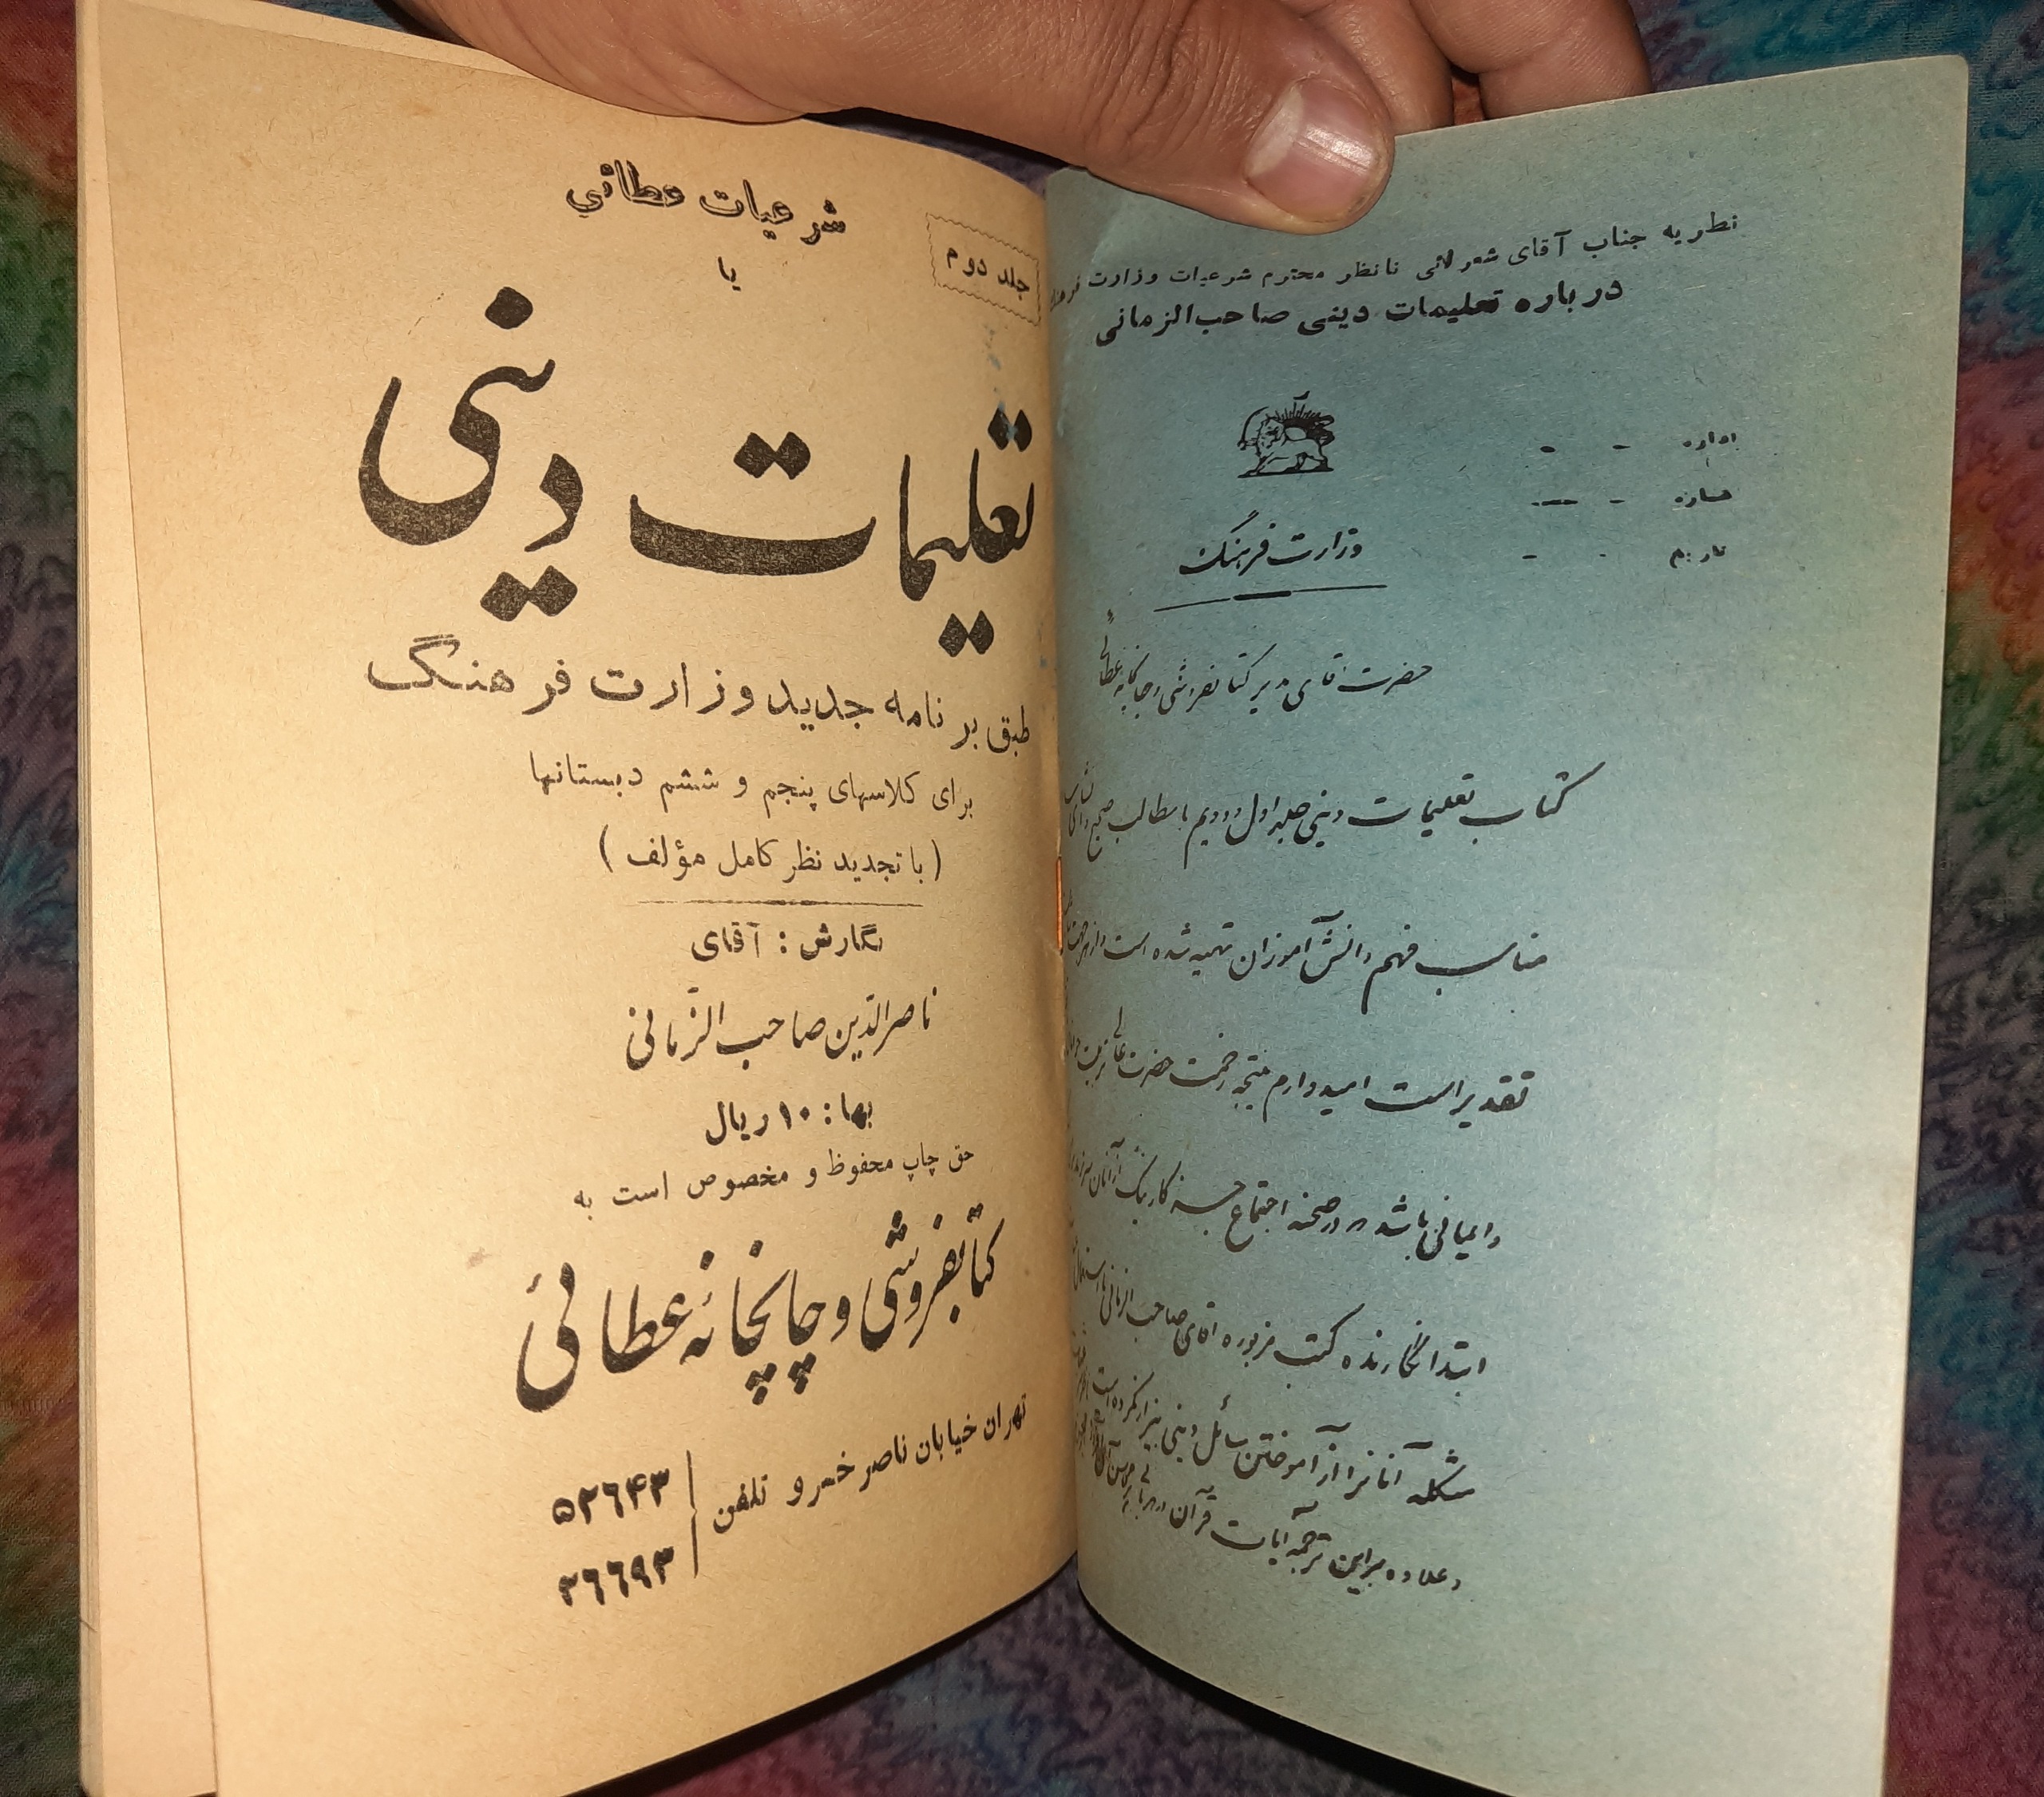 نظریه جناب آقای شعر لائی نانظر محترم شرعیات وزارت فرهنگ
درباره تعلیمات دینی صاحب‌الزمانی
اداره
شماره
تاریخ
وزارت فرهنگ
حضرت آقای مدیر کتابفروشی و چاپخانه عطائی
کتاب تعلیمات دینی جلد اول و دویم با مطالب صحیح و
مناسب فهم دانش آموزان تهیه شده است و از هر جهت
تقدیر است امیدوارم نتیجه زحمت حضرت عالی تربیت
و ایمانی باشد در صحنه اجتماع جز کار نیک از آنان سر
ابتدا نگارنده کتب مزبوره آقای صاحب الزمانی با
مشکله آنانرا از آموختن مسائل دینی بیزار نکرده است
و علاوه بر این ترجمه آیات قرآن
شرعیات عطائی
جلد دوم
یا
تعلیمات دینی
طبق برنامه جدید وزارت فرهنگ
برای کلاسهای پنجم و ششم دبستانها
(با تجدید نظر کامل مؤلف)
نگارش : آقای
ناصرالدّین صاحب الزّمانی
بها : ۱۰ ریال
حق چاپ محفوظ و مخصوص است به
کتابفروشی و چاپخانهٔ عطائی
تهران خیابان ناصر خسرو تلفن
۵۲۶۴۳
۲۶۶۹۳